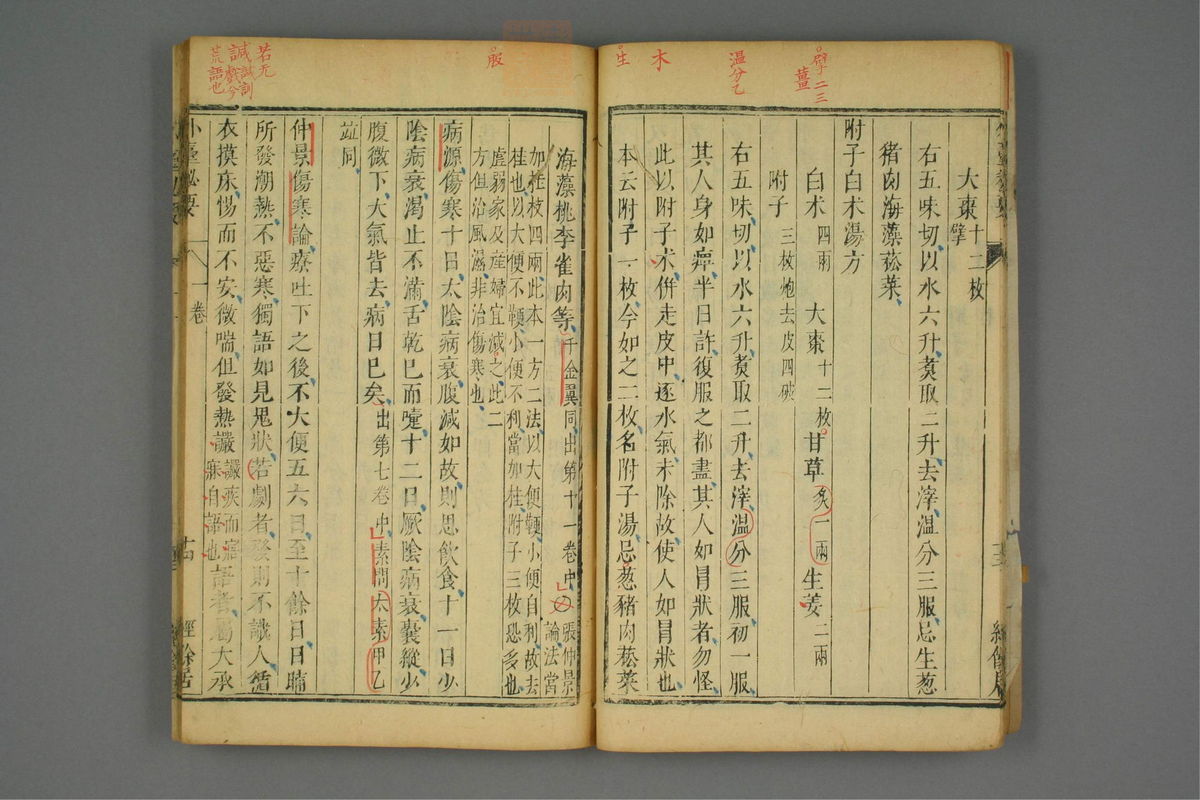 擘二三
薑
温分乙
木
生
大棗十二枚
擘
右五味切以水六升煮取二升去滓温分三服忌生葱
猪肉海藻菘菜
附子白术湯方
白术四兩 大棗十二枚 甘草炙一兩 生姜二兩
附子三枚炮去皮四破
右五味切以水六升煮取二升去滓温分三服初一服
其人身如痺半日許復服之都盡其人如冒狀者勿怪
此以附子术併走皮中逐水氣未除故使人如冒狀也
本云附子一枚今加之二枚名附子湯忌葱豬肉菘菜
服
若无
誠誠訓
誠戲今
荒語也
海藻桃李雀肉等千金翼同出第十一卷中 張仲景
論法當
加桂枝四兩此本一方二法以大便鞕小便自利故去
桂也以大便不鞕小便不利當加桂附子三枚恐多也
虛弱家及産婦宜減之此二
方但治風濕非治傷寒也
病源傷寒十日太陰病衰腹減如故則思飲食十一日少
陰病衰渴止不滿舌乾已而嚏十二日厥陰病衰囊縱少
腹微下大氣皆去病日已矣出第七卷中素問太素甲乙
並同
仲景傷寒論療吐下之後不大便五六日至十餘日日晡
所發潮熱不惡寒獨語如見鬼狀若劇者發則不識人循
衣摸床惕而不安微喘但發熱讝讝疾而寤
寐自語也語者屬大承
外臺秘要 一卷 経餘居